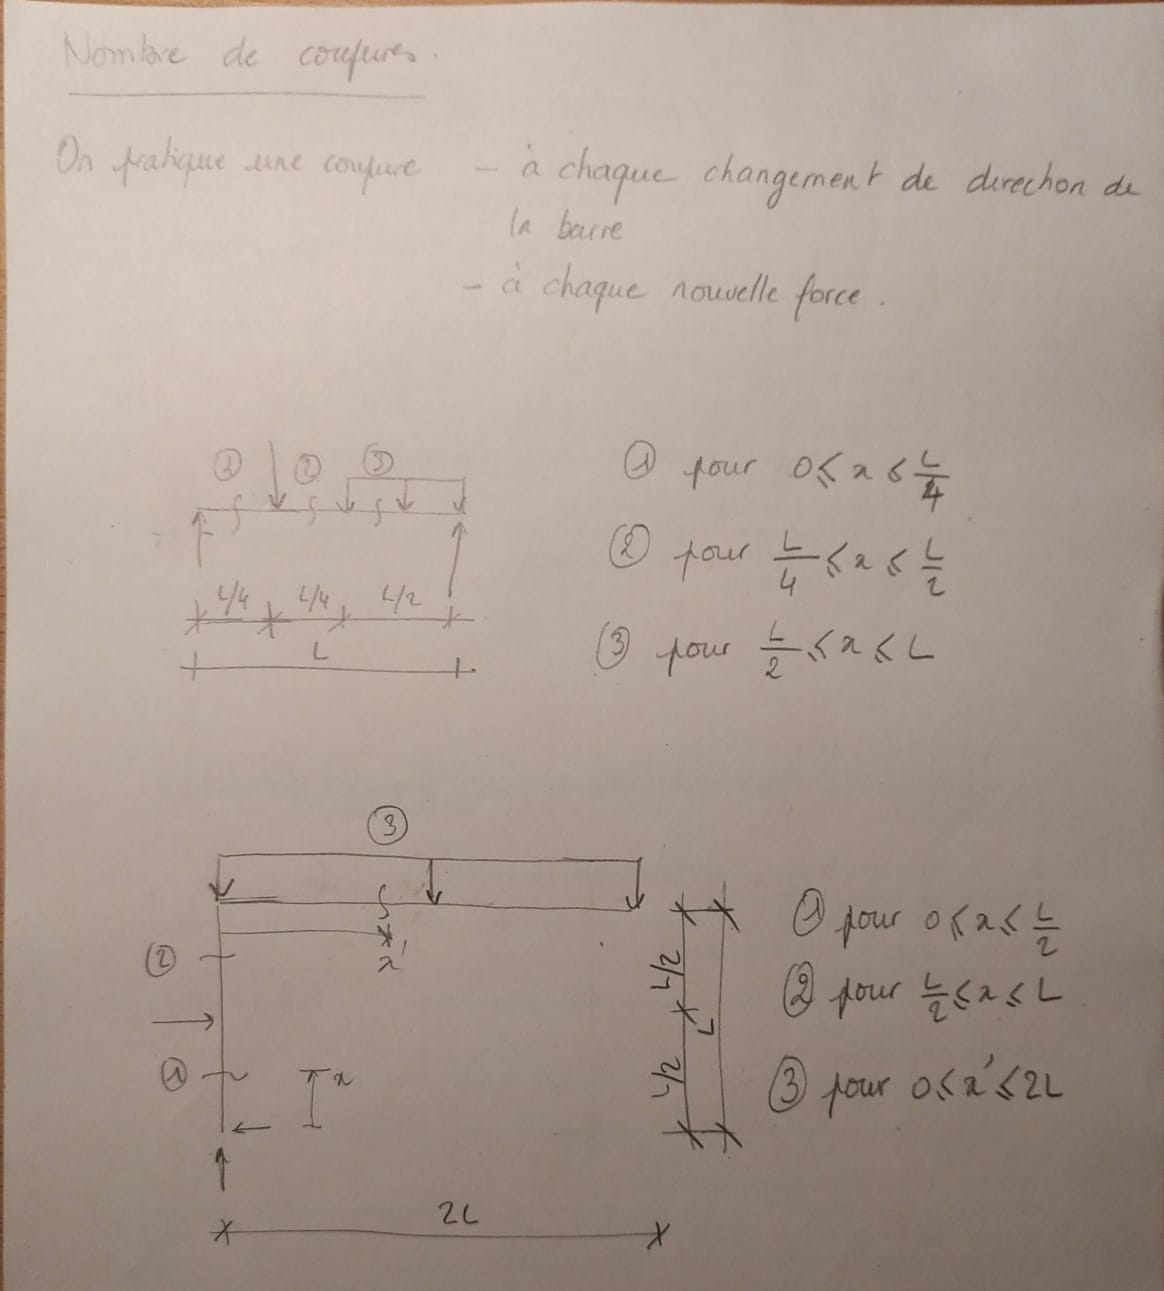 Nombre de coupures.
On pratique une coupure - à chaque changement de direction de
la barre
- à chaque nouvelle force.
① ② ③
L/4 L/4 L/2
L
① pour 0 ≤ x ≤ L/4
② pour L/4 ≤ x ≤ L/2
③ pour L/2 ≤ x ≤ L
③
x'
②
① x
2L
L/2
L/2
L
① pour 0 ≤ x ≤ L/2
② pour L/2 ≤ x ≤ L
③ pour 0 ≤ x' ≤ 2L